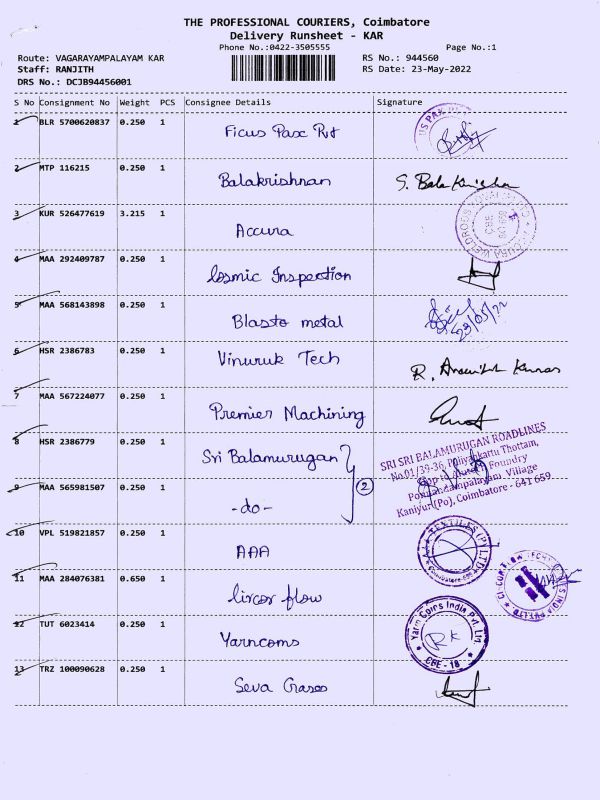 THE PROFESSIONAL COURIERS, Coimbatore
Delivery Runsheet - KAR
Phone No.:0422-3505555
Page No.:1
Route: VAGARAYAMPALAYAM KAR
RS No.: 944560
Staff: RANJITH
RS Date: 23-May-2022
DRS No.: DCJB94456001
S No Consignment No Weight PCS Consignee Details Signature
1 BLR 5700620837 0.250 1 Ficus Pax Pvt
2 MTP 116215 0.250 1 Balakrishnan S. Balakrishnan
3 KUR 526477619 3.215 1 Accura
4 MAA 292409787 0.250 1 Cosmic Inspection
5 MAA 568143898 0.250 1 Blasto metal 23/05/22
6 HSR 2386783 0.250 1 Vinuruk Tech R.
7 MAA 567224077 0.250 1 Premier Machining
8 HSR 2386779 0.250 1 Sri Balamurugan
SRI SRI BALAMURUGAN ROADLINES
No.01/39-36, Thottam,
Foundry
Village
Kaniyur(Po), Coimbatore - 641 659
9 MAA 565981507 0.250 1 -do- 2
10 VPL 519821857 0.250 1 AAA
TEXTILES (P) LTD
11 MAA 284076381 0.650 1 Circor flow
12 TUT 6023414 0.250 1 Yarncoms
Yarn Coms India Pvt. Ltd.
RK
CBE - 18
13 TRZ 100090628 0.250 1 Seva Gases